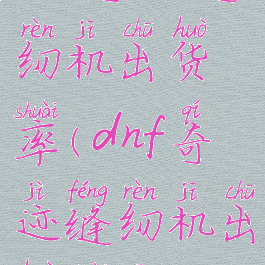 rèn jī chū huò
纫机出货
shuài qí
率(dnf奇
jì féng rèn jī chū
迹缝纫机出